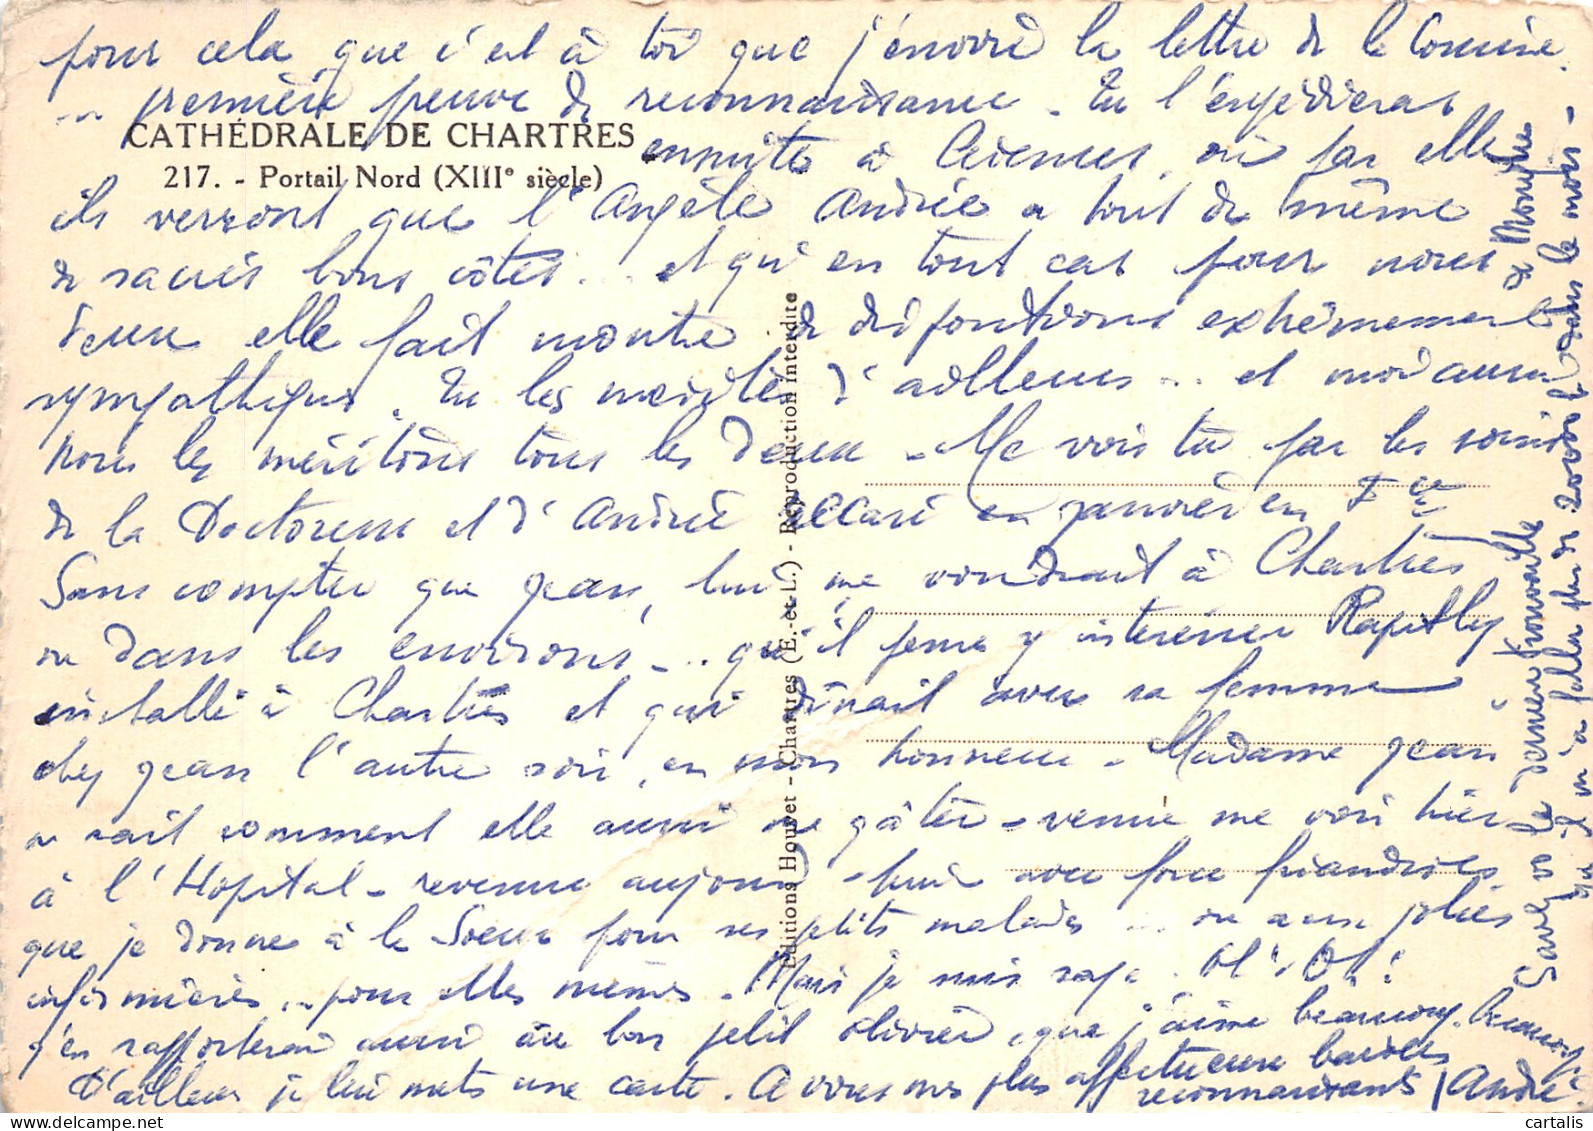 pour cela que c'est à toi que j'envoie la lettre de la Cousine.
... première preuve de reconnaissance - Tu l'expédieras
CATHÉDRALE DE CHARTRES
ensuite à où par elle
217. - Portail Nord (XIIIe siècle)
ils verront que l'Angèle Andrée a tout de même
de sacrés bons côtés... et qu'en tout cas pour nous
deux elle fait montre de dispositions extrêmement
sympathiques. Tu les mérites d'ailleurs... et moi aussi
nous les méritons tous les deux - Me vois tu par les soins
de la Doctoresse et d'André casé en janvier en
Sans compter que Jean, lui me voudrait à Chartres
ou dans les environs... qu'il pense y intéresser
installé à Chartres et qui dînait avec sa femme
chez Jean l'autre soir, en mon honneur - Madame Jean
a sait comment elle aussi me gâter - venue me voir hier
à l'Hôpital - revenue aujourd'hui avec force friandises
que je donne à la Soeur pour ses petits malades ... ou aux jolies
infirmières ... pour elles mêmes. Mais je suis sage. Oh! Oh!
J'en rapporterai aussi au bon petit Olivier, que j'aime beaucoup. Beaucoup.
D'ailleurs je lui mets une carte. A vous mes plus affectueux baisers
reconnaissants André.
Editions Houvet - Chartres (E.-et-L.) - Reproduction interdite
Savez vs le dernier
de
qu'il m'a fallu plus de 20000 f dans le mois -